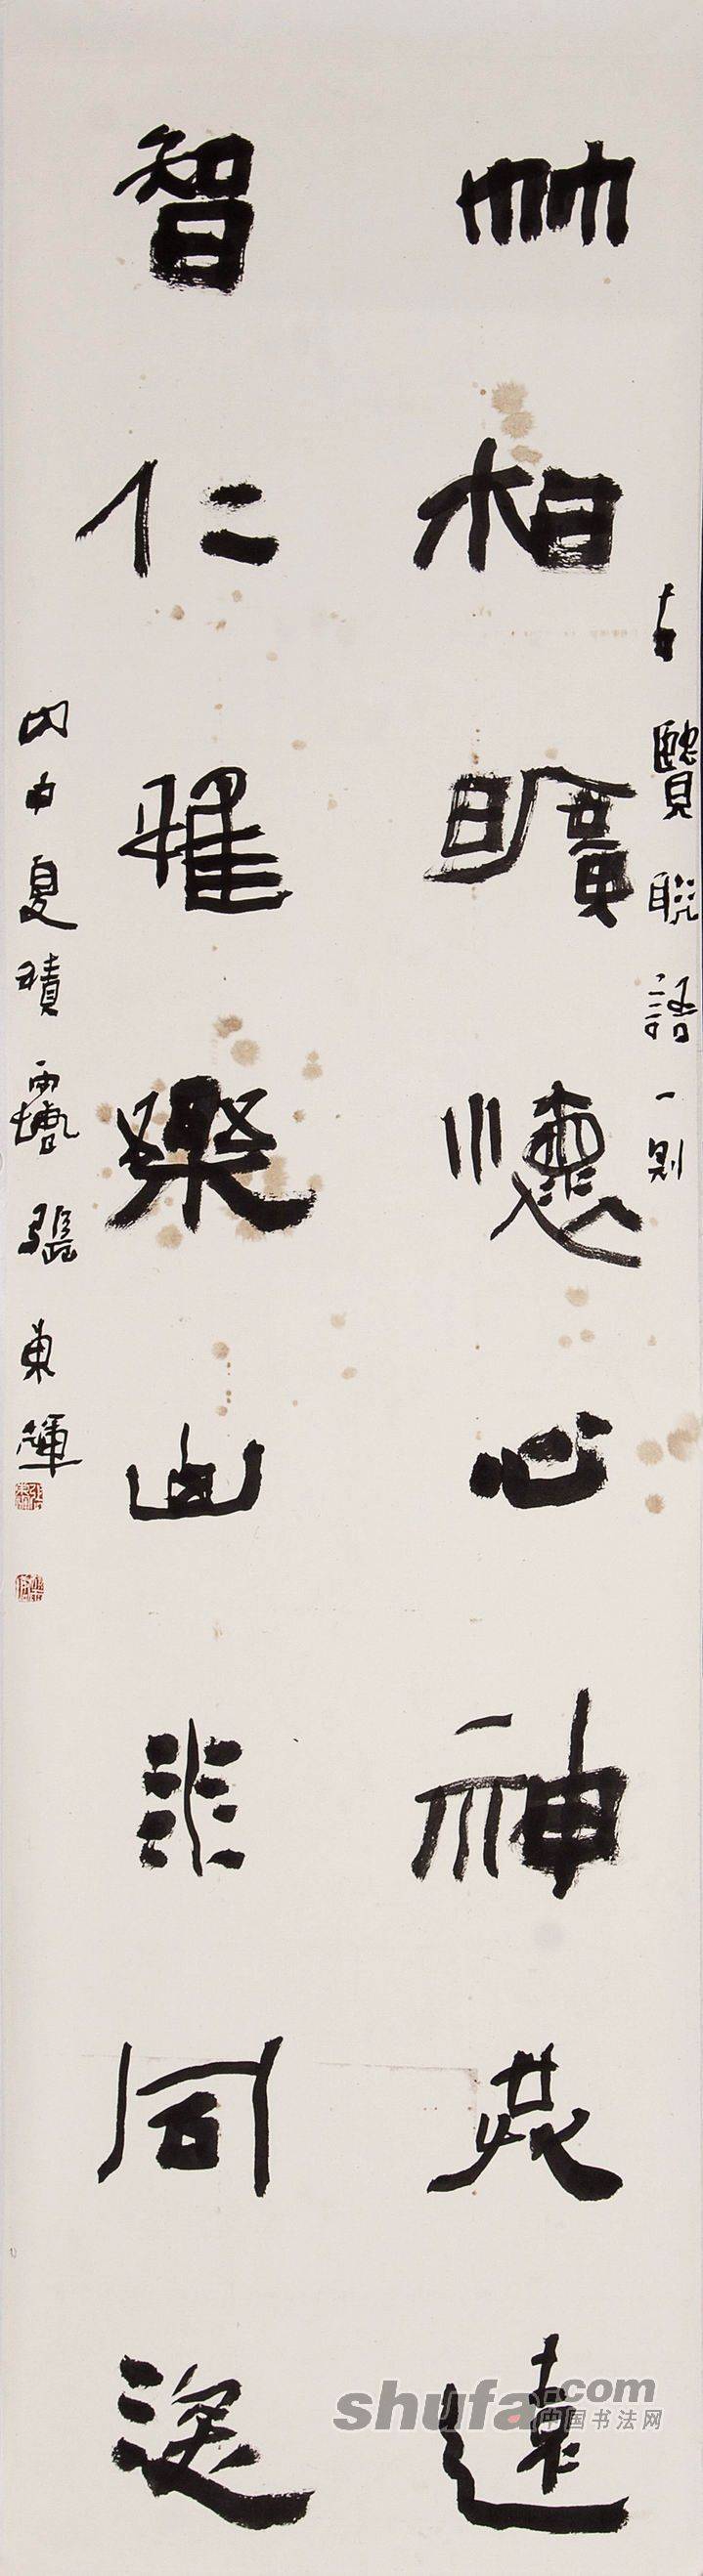 古賢聯語一則
竹柏曠懷心神共遠
智仁雅樂山水同深
丙申夏積 張東輝
shufa.com
中国书法网